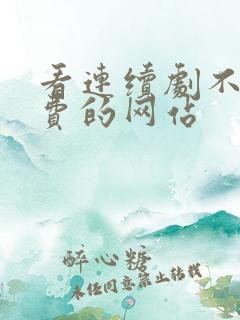 看连续剧不
费的网站
醉心糖
未经同意禁止转载